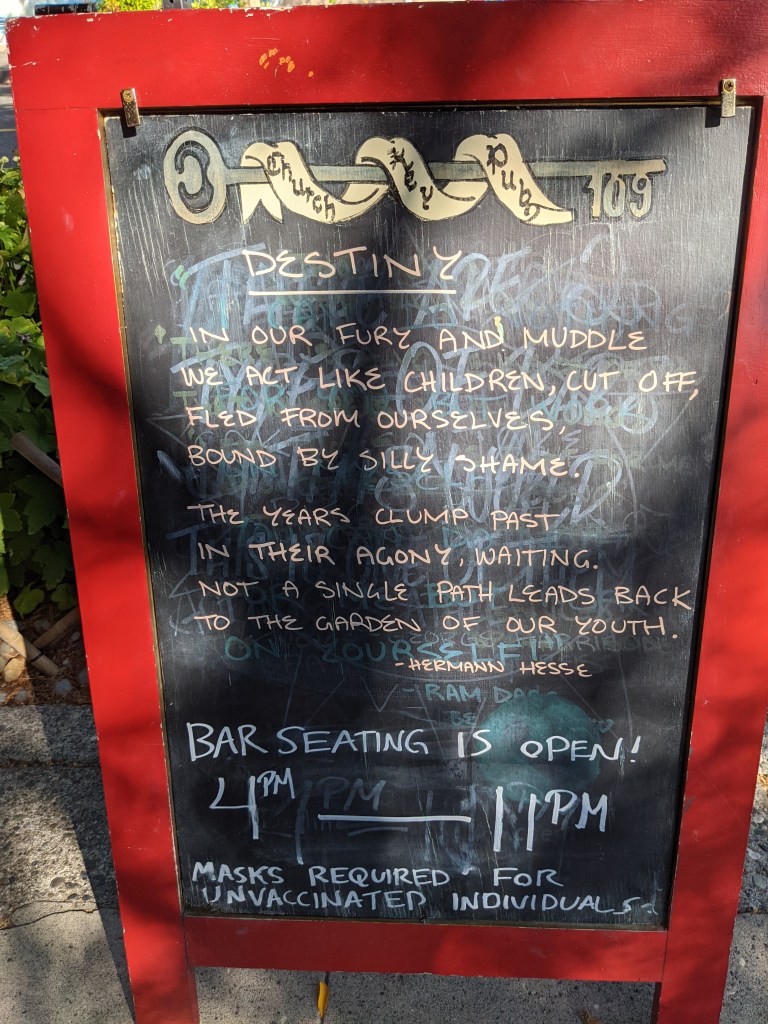 Church Key Pub 109
DESTINY
IN OUR FURY AND MUDDLE
WE ACT LIKE CHILDREN, CUT OFF,
FLED FROM OURSELVES,
BOUND BY SILLY SHAME.
THE YEARS CLUMP PAST
IN THEIR AGONY, WAITING.
NOT A SINGLE PATH LEADS BACK
TO THE GARDEN OF OUR YOUTH.
ON YOURSELF!
-HERMANN HESSE
-RAM DASS
BAR SEATING IS OPEN!
4PM — 11PM
MASKS REQUIRED FOR
UNVACCINATED INDIVIDUALS.